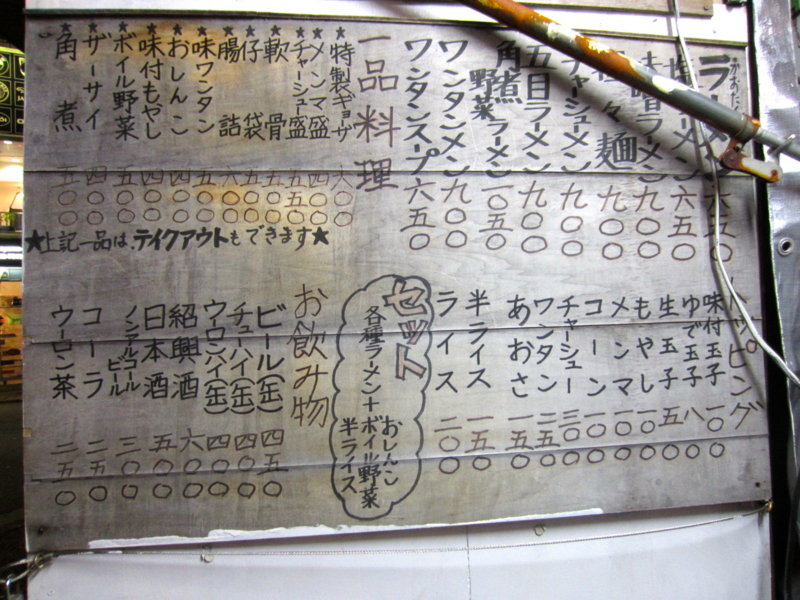 ラーメン 六五〇
ラーメン 六五〇
味噌ラーメン 九〇〇
々麺 九〇〇
チャーシューメン 九〇〇
五目ラーメン 九〇〇
角煮野菜ラーメン 一〇五〇
ワンタンメン 九〇〇
ワンタンスープ 六五〇
一品料理
★特製ギョザ 六〇〇
★メンマ盛 四〇〇
★チャーシュー盛 五五〇
★軟骨 五〇〇
★仔袋 五〇〇
★腸詰 六〇〇
★味ワンタン 五〇〇
★おしんこ 四〇〇
★味付もやし 四〇〇
★ボイル野菜 五〇〇
★ザーサイ 四〇〇
★角煮 五〇〇
★上記一品は、テイクアウトもできます★
トッピング
味付玉子 一〇〇
ゆで玉子 八〇
生玉子 五〇
もやし 一〇〇
メンマ 一〇〇
コーン 一〇〇
チャーシュー 三〇〇
ワンタン 二五〇
あおさ 一五〇
半ライス 一五〇
ライス 二〇〇
セット
各種ラーメン+
おしんこ
ボイル野菜
半ライス
お飲み物
ビール(缶) 四五〇
チューハイ(缶) 四〇〇
ウーロンハイ(缶) 四〇〇
紹興酒 六〇〇
日本酒 五〇〇
ノンアルコールビール 三〇〇
コーラ 二五〇
ウーロン茶 二五〇